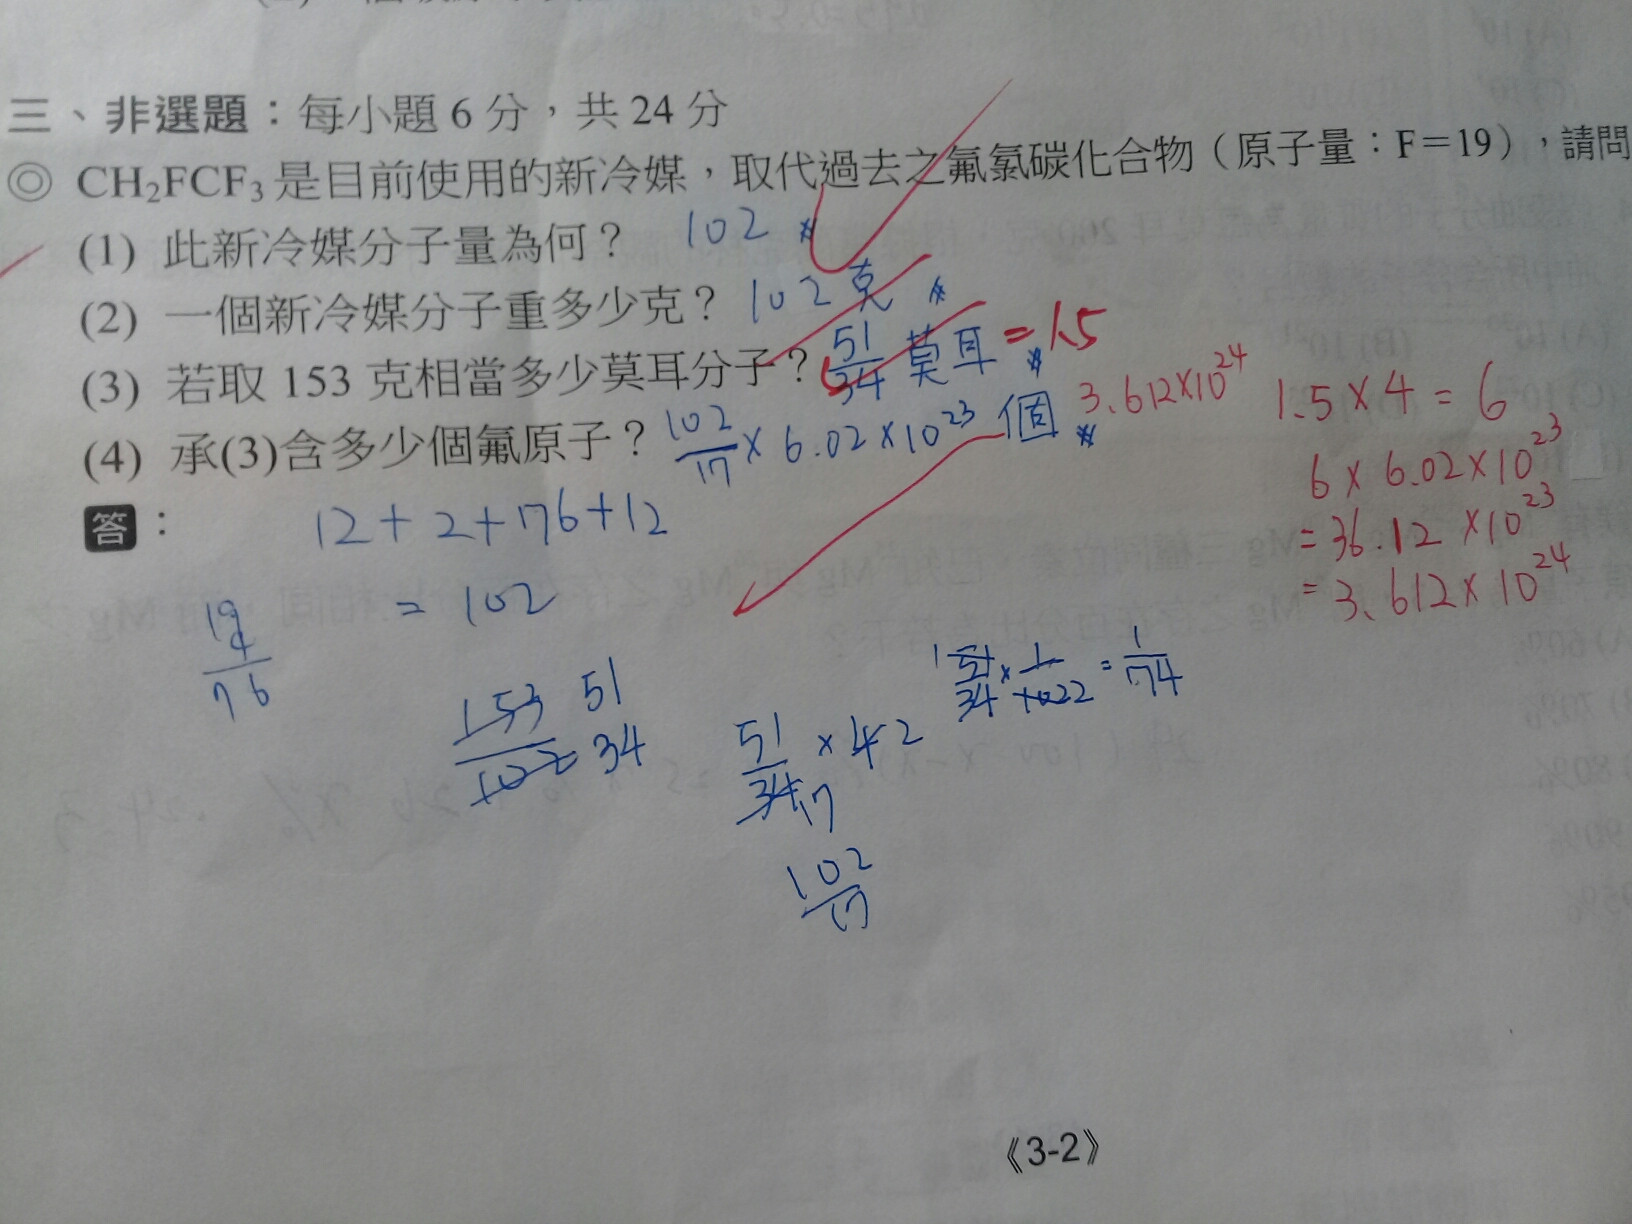 三、非選題：每小題6分，共24分
◎ CH₂FCF₃是目前使用的新冷媒，取代過去之氟氯碳化合物（原子量：F＝19），請問
(1) 此新冷媒分子量為何？ 102
(2) 一個新冷媒分子重多少克？ 102克
(3) 若取153克相當多少莫耳分子？ 51/34 莫耳 = 1.5
(4) 承(3)含多少個氟原子？ 102/17 × 6.02×10²³ 個 3.612×10²⁴
1.5×4=6
6×6.02×10²³
=36.12×10²³
=3.612×10²⁴
答：
12+2+76+12
=102
19
4
76
153 51
102 34
51/34 17 ×4 2
102/17
1 51/34 × 1/1022 = 1/74
《3-2》